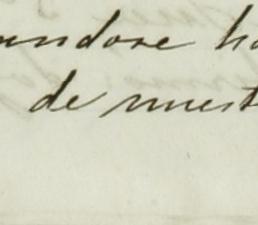 undose ha
de nuest